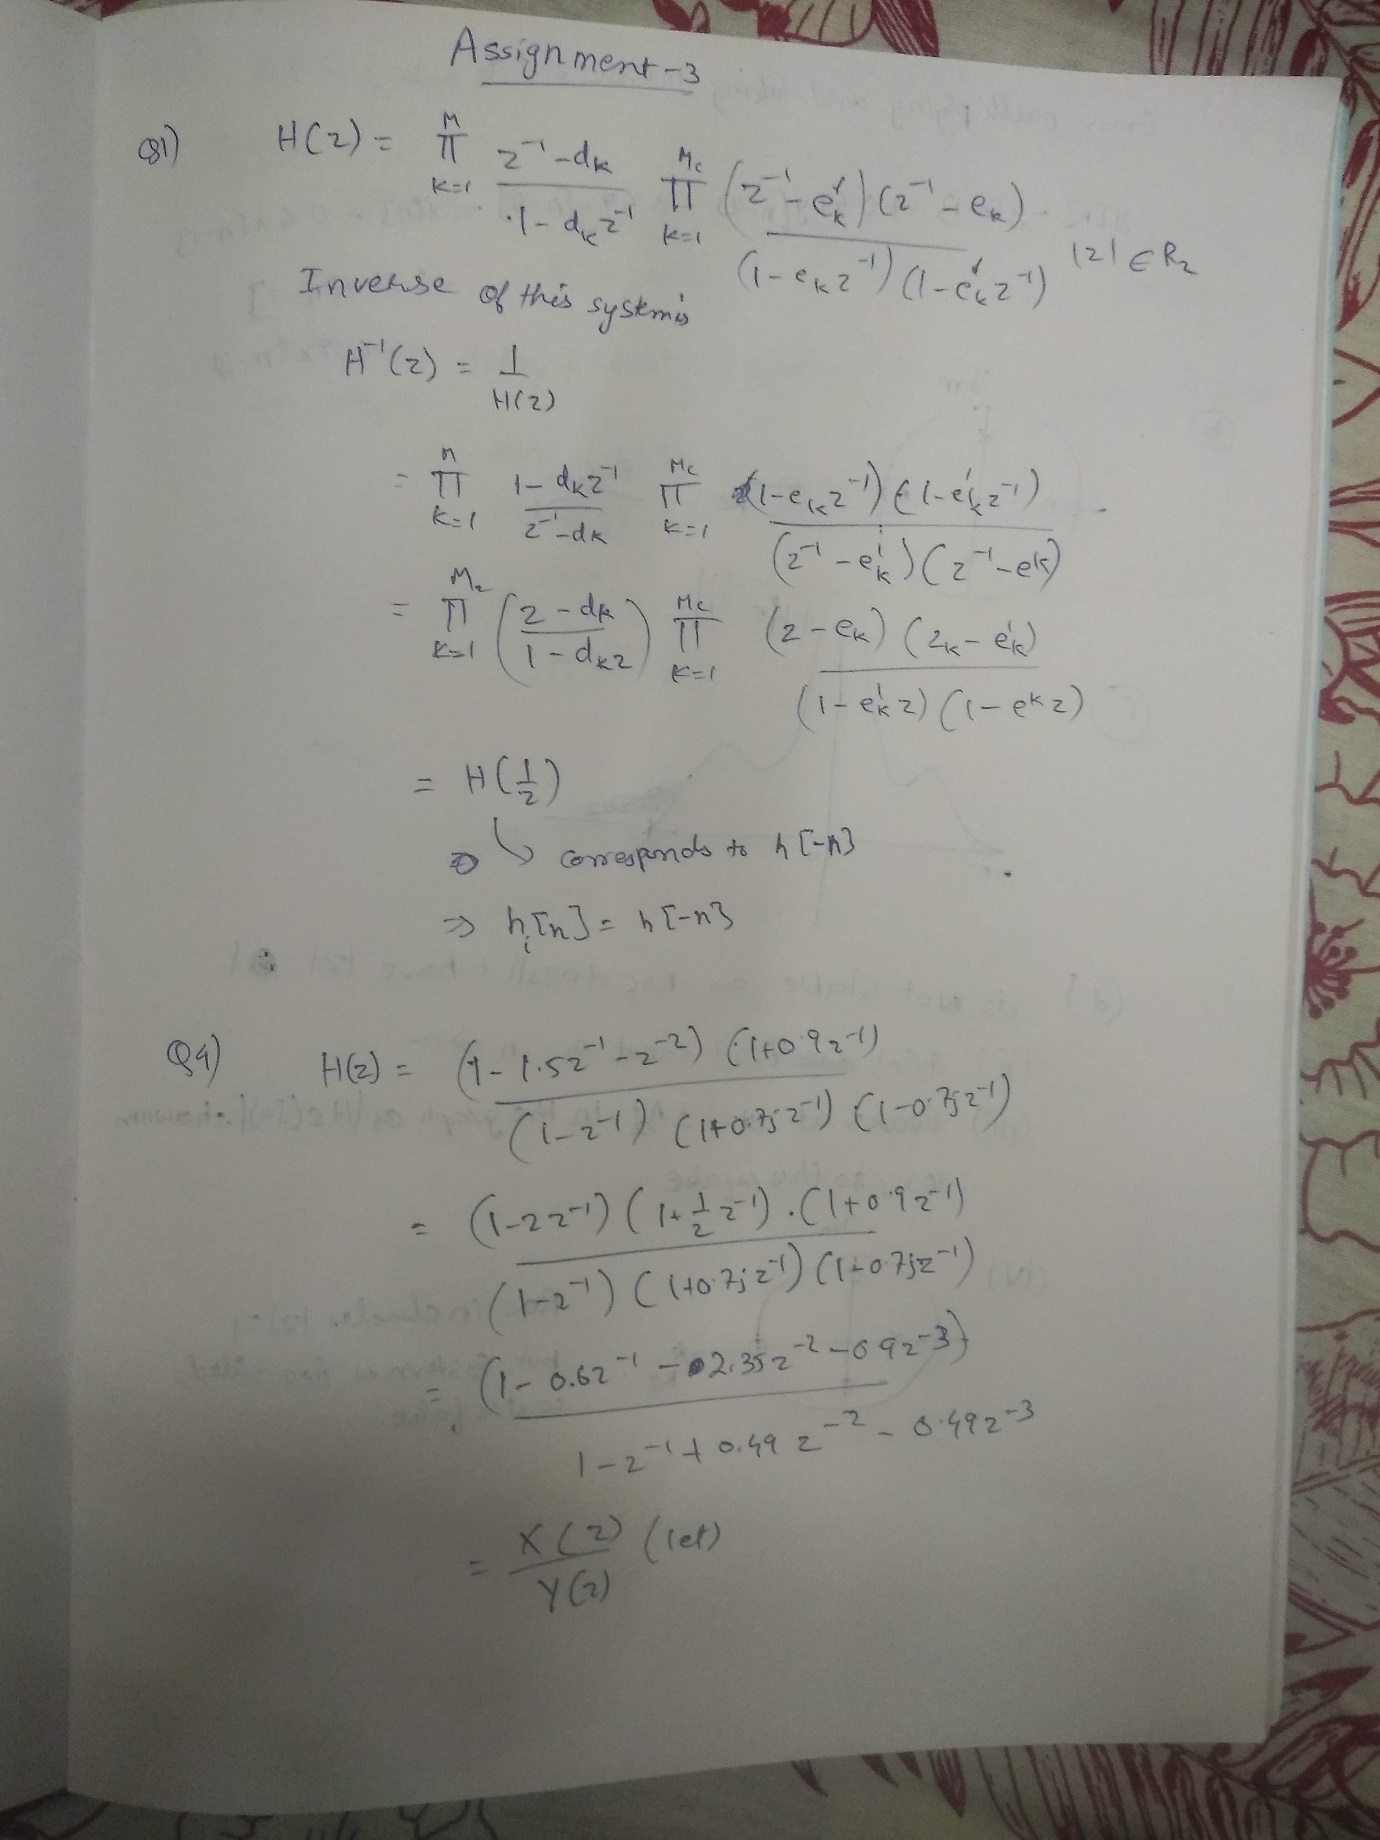 Assignment-3
Q1) H(z) = M ∏ k=1 (z⁻¹ - dₖ)/(1 - dₖz⁻¹) Mc ∏ k=1 (z⁻¹ - eₖ')(z⁻¹ - eₖ)/((1 - eₖz⁻¹)(1 - eₖ'z⁻¹)) |z| ∈ R₂
Inverse of this system is
H⁻¹(z) = 1/H(z)
= M ∏ k=1 (1 - dₖz⁻¹)/(z⁻¹ - dₖ) Mc ∏ k=1 (1 - eₖz⁻¹)(1 - eₖ'z⁻¹)/((z⁻¹ - eₖ')(z⁻¹ - eₖ))
= M₂ ∏ k=1 ((z - dₖ)/(1 - dₖz)) Mc ∏ k=1 (z - eₖ)(zₖ - eₖ')/((1 - eₖ'z)(1 - eᵏz))
= H(1/z)
↳ corresponds to h[-n]
⇒ hᵢ[n] = h[-n]
Q4) H(z) = (1 - 1.5z⁻¹ - z⁻²)(1 + 0.9z⁻¹)/((1 - z⁻¹)(1 + 0.7jz⁻¹)(1 - 0.7jz⁻¹))
= (1 - 2z⁻¹)(1 + 1/2 z⁻¹).(1 + 0.9z⁻¹)/((1 - z⁻¹)(1 + 0.7jz⁻¹)(1 - 0.7jz⁻¹))
= (1 - 0.6z⁻¹ - 2.35z⁻² - 0.9z⁻³)/(1 - z⁻¹ + 0.49z⁻² - 0.49z⁻³)
= X(z)/Y(z) (let)